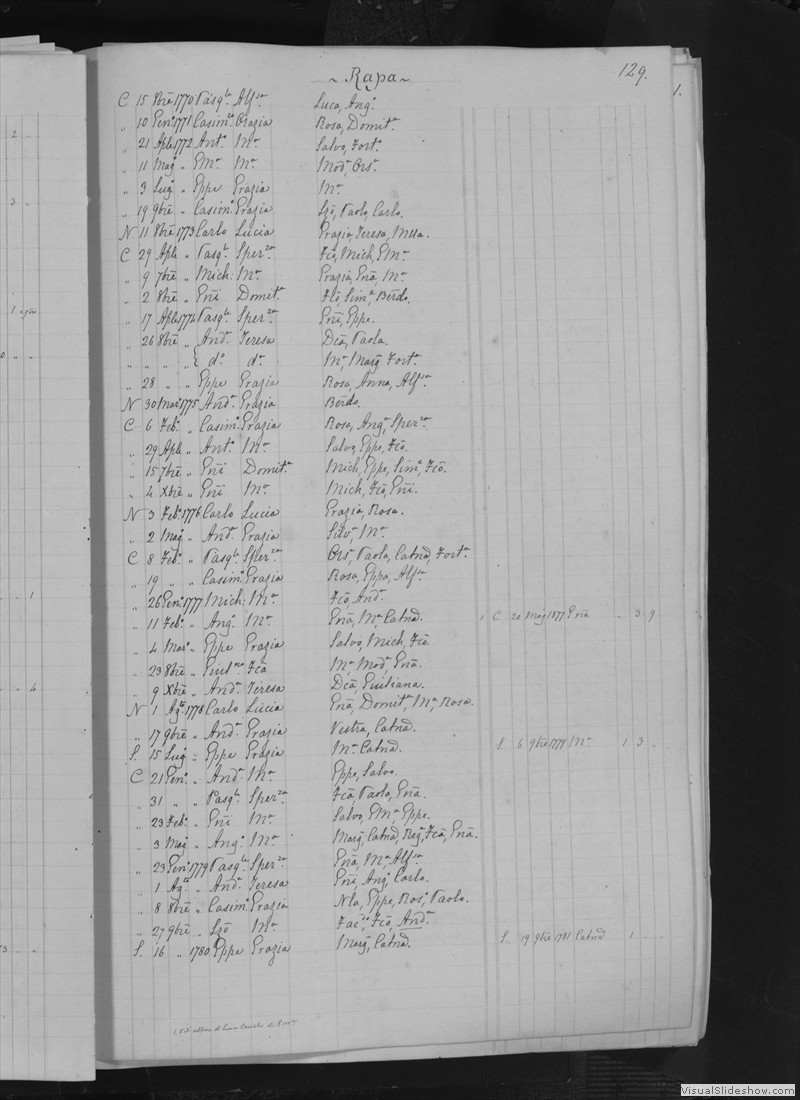 129.
~ Rapa ~
C 15 8bre 1770 Pasqle Alfsa Luca, Ango
" 10 Geno 1771 Casimo Grazia Rosa, Domita
" 21 Aple 1772 Anto Ma Salvo, Forta
" 11 Mago " Ma Moda, Orsa
" 3 Lugo " Gppe Grazia Ma
" 19 9bre " Casimo Grazia Lzo, Paolo, Carlo.
N 11 8bre 1773 Carlo Lucia Grazia, Teresa, Mlla.
C 29 Aple " Pasqle Sperza Fco, Mich, Gma
" 9 7bre " Mich: Ma Grazia, Gna, Ma
" 2 8bre " Gni Domita Flo, Sime, Berdo.
" 17 Aple 1774 Pasqle Sperza Gni, Gppe.
" 26 8bre " Anda Teresa Dca, Paola.
" " " " { do do Ma, Marga, Forta
" 28 " " Gppe Grazia Rosa, Anna, Alfsa
N 30 Maro 1775 Anda Grazia Berdo.
C 6 Febo " Casimo Grazia Rosa, Anga, Sperza
" 29 Aple " Anto Ma Salvo, Gppe, Fco.
" 15 7bre " Gni Domita Mich, Gppe, Sime, Fco.
" 4 Xbre " Gni Ma Mich, Fco, Gni.
N 3 Febo 1776 Carlo Lucia Grazia, Rosa.
" 2 Mago " Anda Grazia Silva, Ma
C 8 Febo " Pasqle Sperza Orsa, Paola, Catnd, Forta
" 19 " " Casimo Grazia Rosa, Gppa, Alfsa
" 26 Geno 1777 Mich: Ma Fco, Anda
" 11 Febo " Ango Ma Gna, Ma, Catnd. 1 C 20 Mago 1877 Gna " 3 9
" 4 Maro " Gppe Grazia Salvo, Mich, Fco.
" 23 8bre " Fca Ma, Moda, Gna.
" 9 Xbre " Anda Teresa Dca, Giuliana.
N 1 Agto 1778 Carlo Lucia Gna, Domita, Ma, Rosa.
" 17 9bre " Anda Grazia Vestra, Catnd.
S. 15 Lugo " Gppe Grazia Ma, Catnd. S. 6 9bre 1779 Ma 1 3 "
C 21 Geno " Anda Ma Gppe, Salvo.
" 31 " " Pasqle Sperza Fca, Paola, Gna.
" 23 Febo " Gni Ma Salvo, Gma, Gppe.
" 3 Mago " Ango Ma Marga, Catnd, Rega, Fca, Gna.
" 23 Geno 1779 Pasqle Sperza Gna, Ma, Alfsa
" 1 Agto " Anda Teresa Gni, Ango, Carlo.
" 8 8bre " Casimo Grazia Nla, Gppe, Roso, Paolo.
" 27 9bre " Lzo Ma Fco, Anda
S. 16 " 1780 Gppe Grazia Marga, Catnd. S. 19 9bre 1781 Catnd 1
VisualSlideshow.com